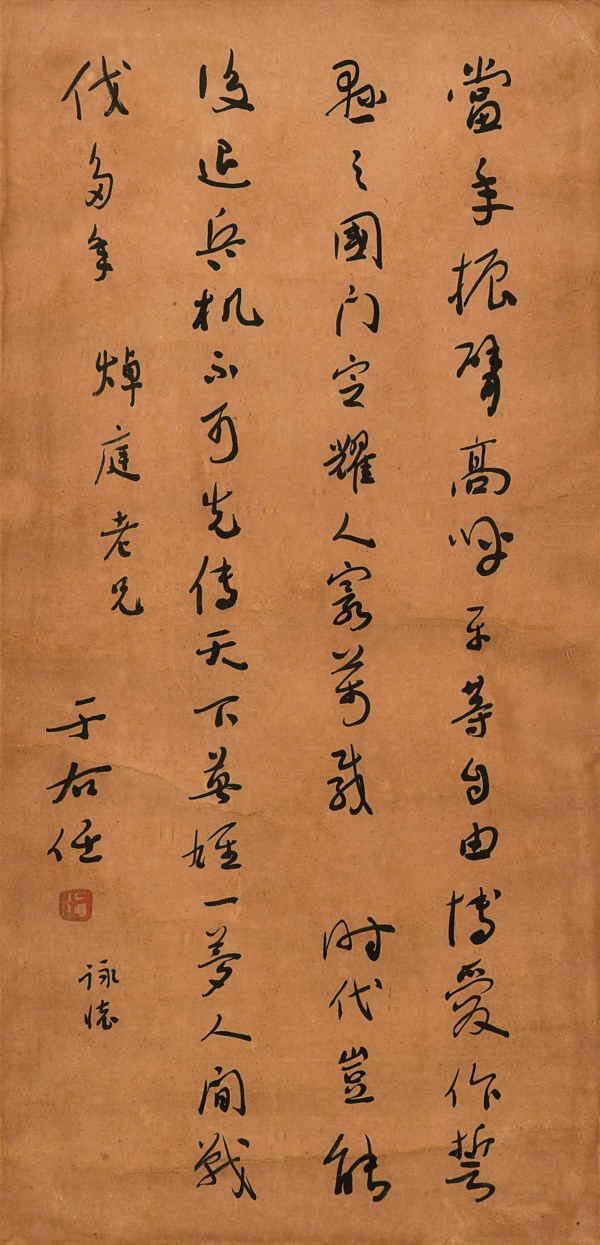 當年振臂高呼平等自由博愛作誓
懸之國門定耀人寰萬載 时代豈能
後退兵机不可先傳天下英雄一夢人間戰
伐多年
焯庭老兄
于右任
詠懷